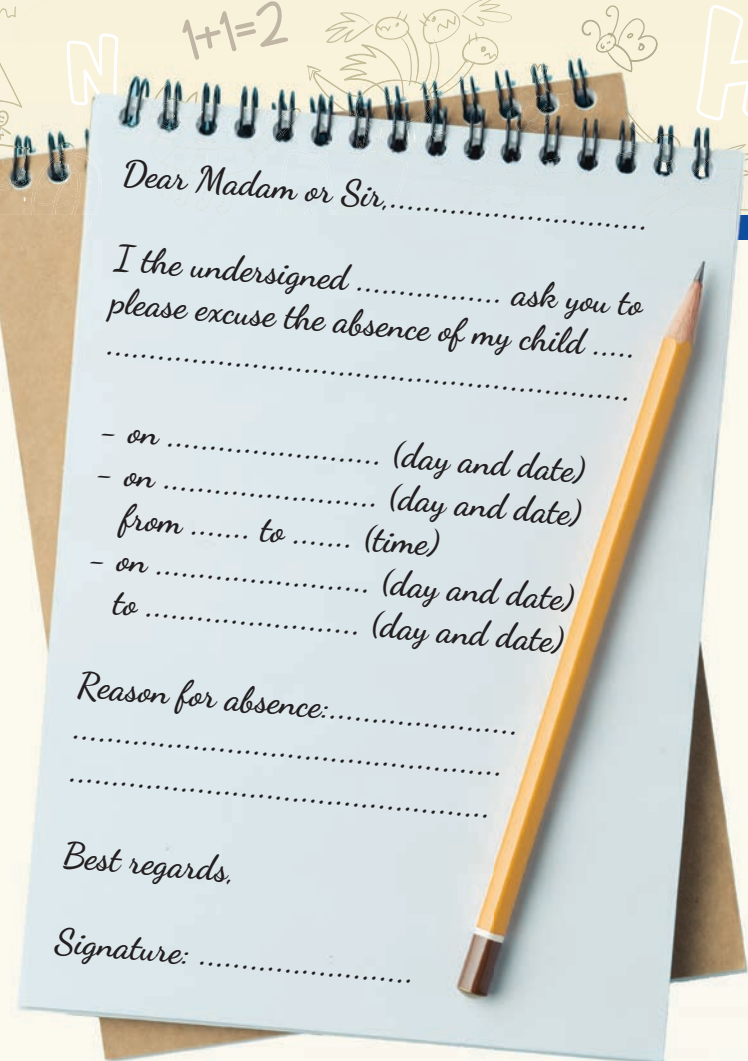 1+1=2
N
H
Dear Madam or Sir,..............................
I the undersigned ................ ask you to
please excuse the absence of my child .....
.............................................................
- on ......................... (day and date)
- on ......................... (day and date)
from ....... to ....... (time)
- on ......................... (day and date)
to ......................... (day and date)
Reason for absence:......................
..................................................
.................................................
Best regards,
Signature: .........................